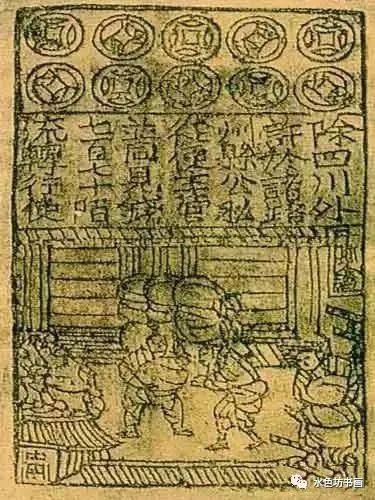 除四川外
許於諸路
州縣公私
從便主管
並同見錢
七百七十陌
流轉行使
水色坊书画